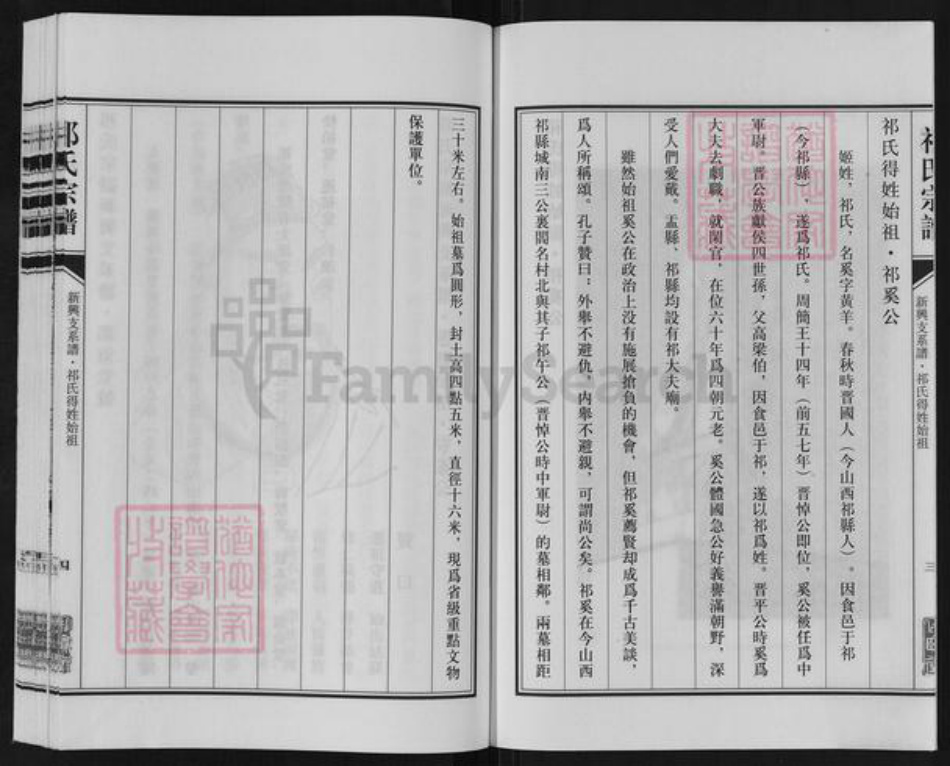 祁氏宗譜
新興支系譜·祁氏得姓始祖
三
祁氏得姓始祖·祁奚公
姬姓，祁氏，名奚字黃羊。春秋時晋國人（今山西祁縣人）。因食邑于祁
（今祁縣），遂爲祁氏。周簡王十四年（前五七年）晋悼公即位，奚公被任爲中
軍尉。晋公族獻侯四世孫，父高梁伯，因食邑于祁，遂以祁爲姓。晋平公時奚爲
大夫去劇職，就閑官，在位六十年爲四朝元老。奚公體國急公好義譽滿朝野，深
受人們愛戴。盂縣、祁縣均設有祁大夫廟。
雖然始祖奚公在政治上没有施展搶負的機會，但祁奚薦賢却成爲千古美談，
爲人所稱頌。孔子贊曰：外舉不避仇，内舉不避親，可謂尚公矣。祁奚在今山西
祁縣城南三公裏閻名村北與其子祁午公（晋悼公時中軍尉）的墓相鄰。兩墓相距
三十米左右。始祖墓爲圓形，封土高四點五米，直徑十六米，現爲省級重點文物
保護單位。
祁氏宗譜
新興支系譜·祁氏得姓始祖
四
FamilySearch